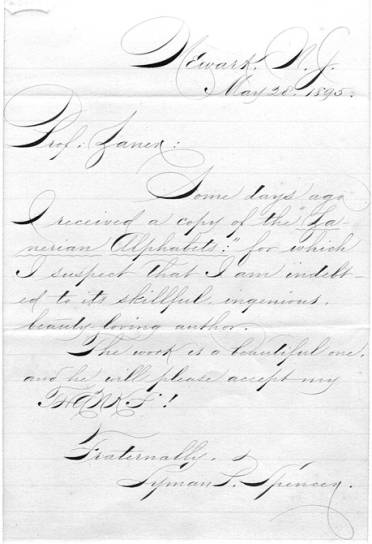 Newark, N.J.
May 28, 1895.
Prof. Zaner:
Some days ago
I received a copy of the "Za-
nerian Alphabets:" for which
I suspect that I am indebt-
ed to its skillful, ingenious,
beauty-loving author.
The work is a beautiful one,
and he will please accept my
THANKS!
Fraternally,
Lyman P. Spencer.